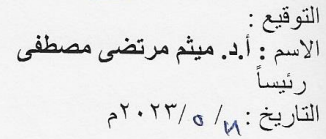 التوقيع :
الاسم : أ.د. ميثم مرتضى مصطفى
رئيساً
التاريخ : / ٥ /٢٠٢٣م